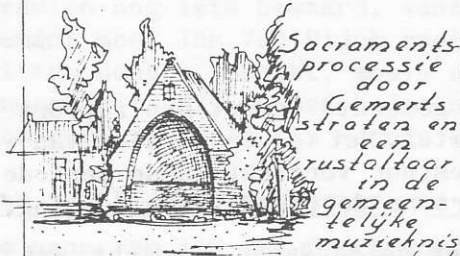 Sacraments-
processie
door
Gemerts
straten en
een
rustaltaar
in de
gemeen-
telijke
muzieknis